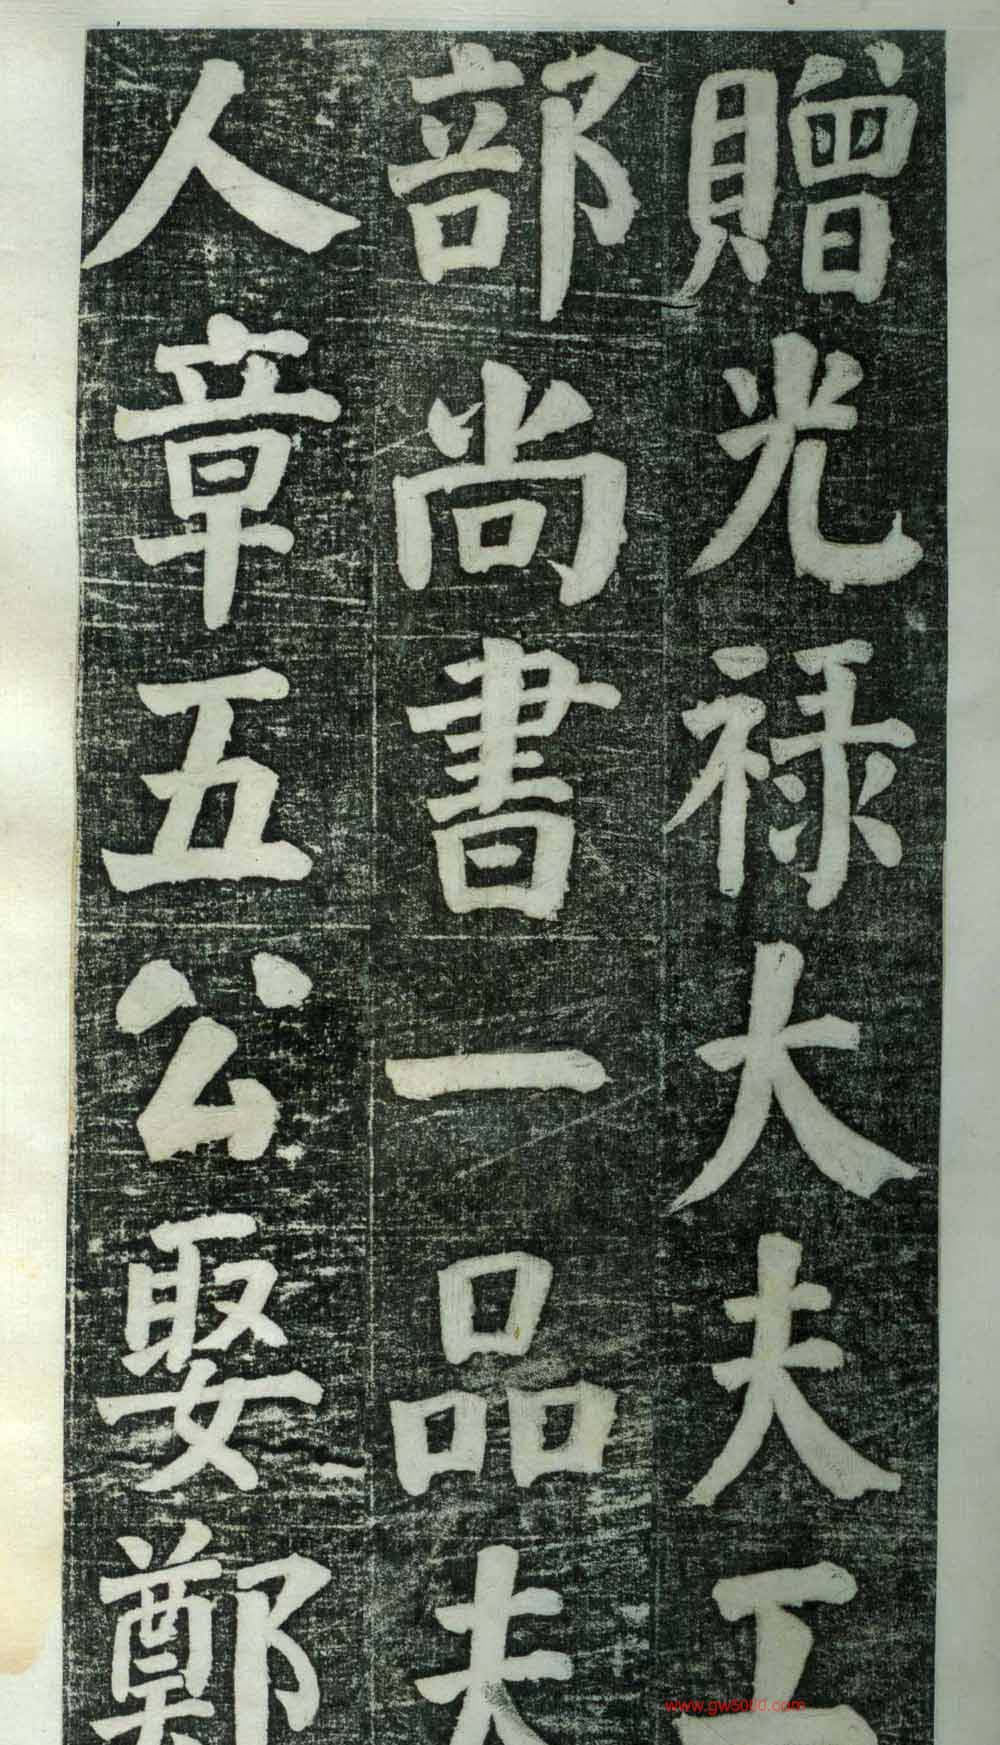 贈光禄大夫工
部尚書一品夫
人章五公娶鄭
www.gw5000.com